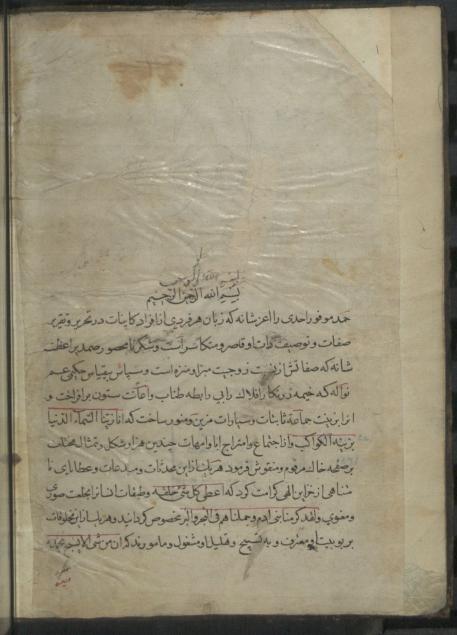 بسم الله الرحمن الرحیم
حمد موفور احدی را اعز شانه که زبان هر فردی از افراد کاینات در تحریر و تقریر
صفات و توصیف ذات او قاصر و متکاسر است و شکر نامحصور صمدیرا عظمت
شانه که صفاتش از زینت زوجیت مبرا و منزه است و سپاس بیقیاس حکیمی عم
نواله که خیمه زرنگار افلاک را بی رابطه طناب و اعانت ستون برافراخت و
انرا بزینت جماعة ثابتات و سیارات مزین و منور ساخت که انا زینا السماء الدنیا
بزینة الکواکب و از اجتماع و امتزاج ابا و امهات چندین هزار شکل و تمثال مختلف
بر صفحه خاک مرقوم و منقوش فرمود هر یک از این مبدعات و عطایای نا
متناهی از خزاین الهی کرامت کرد که اعطی کل شئ خلقه و طبقات انسانرا بخلعت صوری
و معنوی ولقد کرمنا بنی ادم و حملناهم فی البر و البحر مخصوص کردانید و هر یک از این مخلوقات
بربوبیت او معترف و به تسبیح و تهلیل او مشغول و مامورند که وان من شئ الا یسبح بحمده